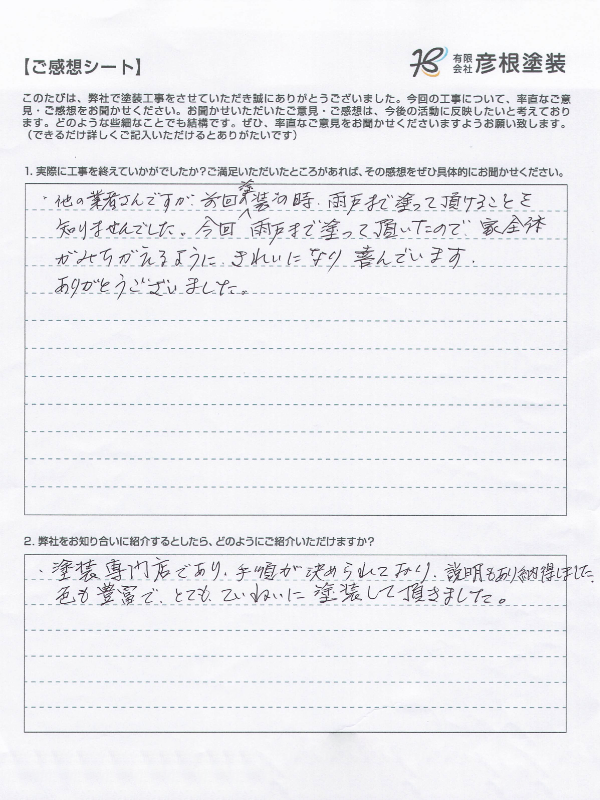 【ご感想シート】
有限会社 彦根塗装
このたびは、弊社で塗装工事をさせていただき誠にありがとうございました。今回の工事について、率直なご意
見・ご感想をお聞かせください。お聞かせいただいたご意見・ご感想は、今後の活動に反映したいと考えており
ます。どのような些細なことでも結構です。ぜひ、率直なご意見をお聞かせくださいますようお願い致します。
（できるだけ詳しくご記入いただけるとありがたいです）
1. 実際に工事を終えていかがでしたか?ご満足いただいたところがあれば、その感想をぜひ具体的にお聞かせください。
・他の業者さんですが、前回塗装の時、雨戸まで塗って頂けることを
知りませんでした。今回 雨戸まで塗って頂いたので 家全体
がみちがえるように きれいになり 喜んでいます.
ありがとうございました。
2. 弊社をお知り合いに紹介するとしたら、どのようにご紹介いただけますか?
・塗装専門店であり、手順が決められており、説明もあり納得しました
色も豊富で、とても、ていねいに塗装して頂きました。